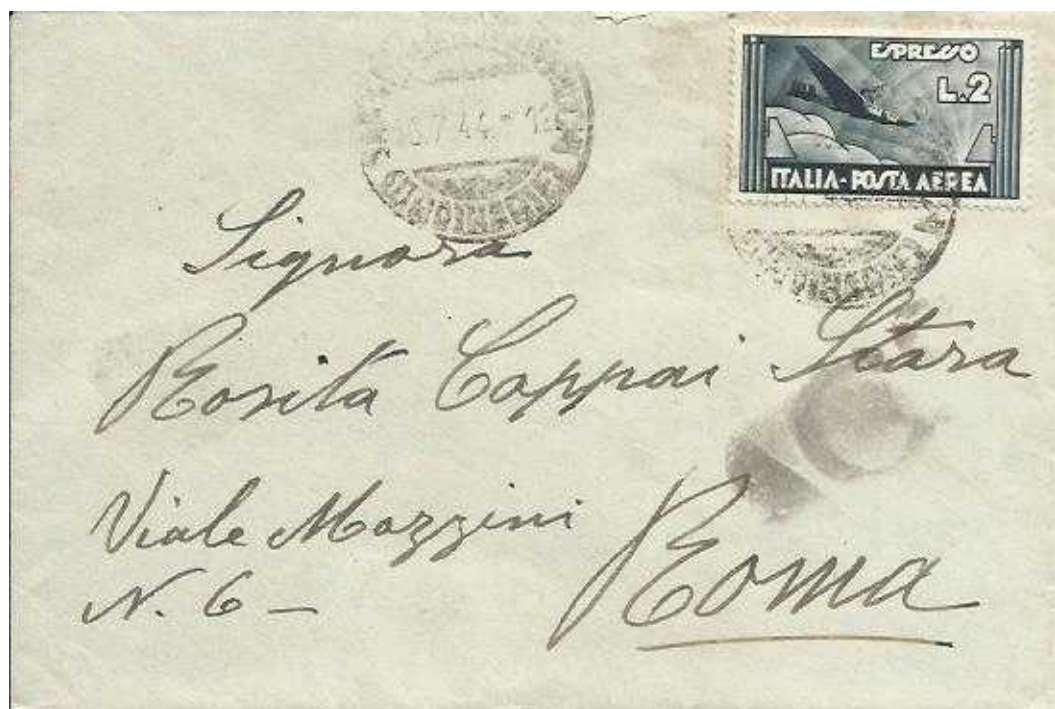 ESPRESSO
L.2
ITALIA-POSTA AEREA
7 44
Signora
Rosita Cappai Stara
Viale Mazzini
N. 6 —
Roma